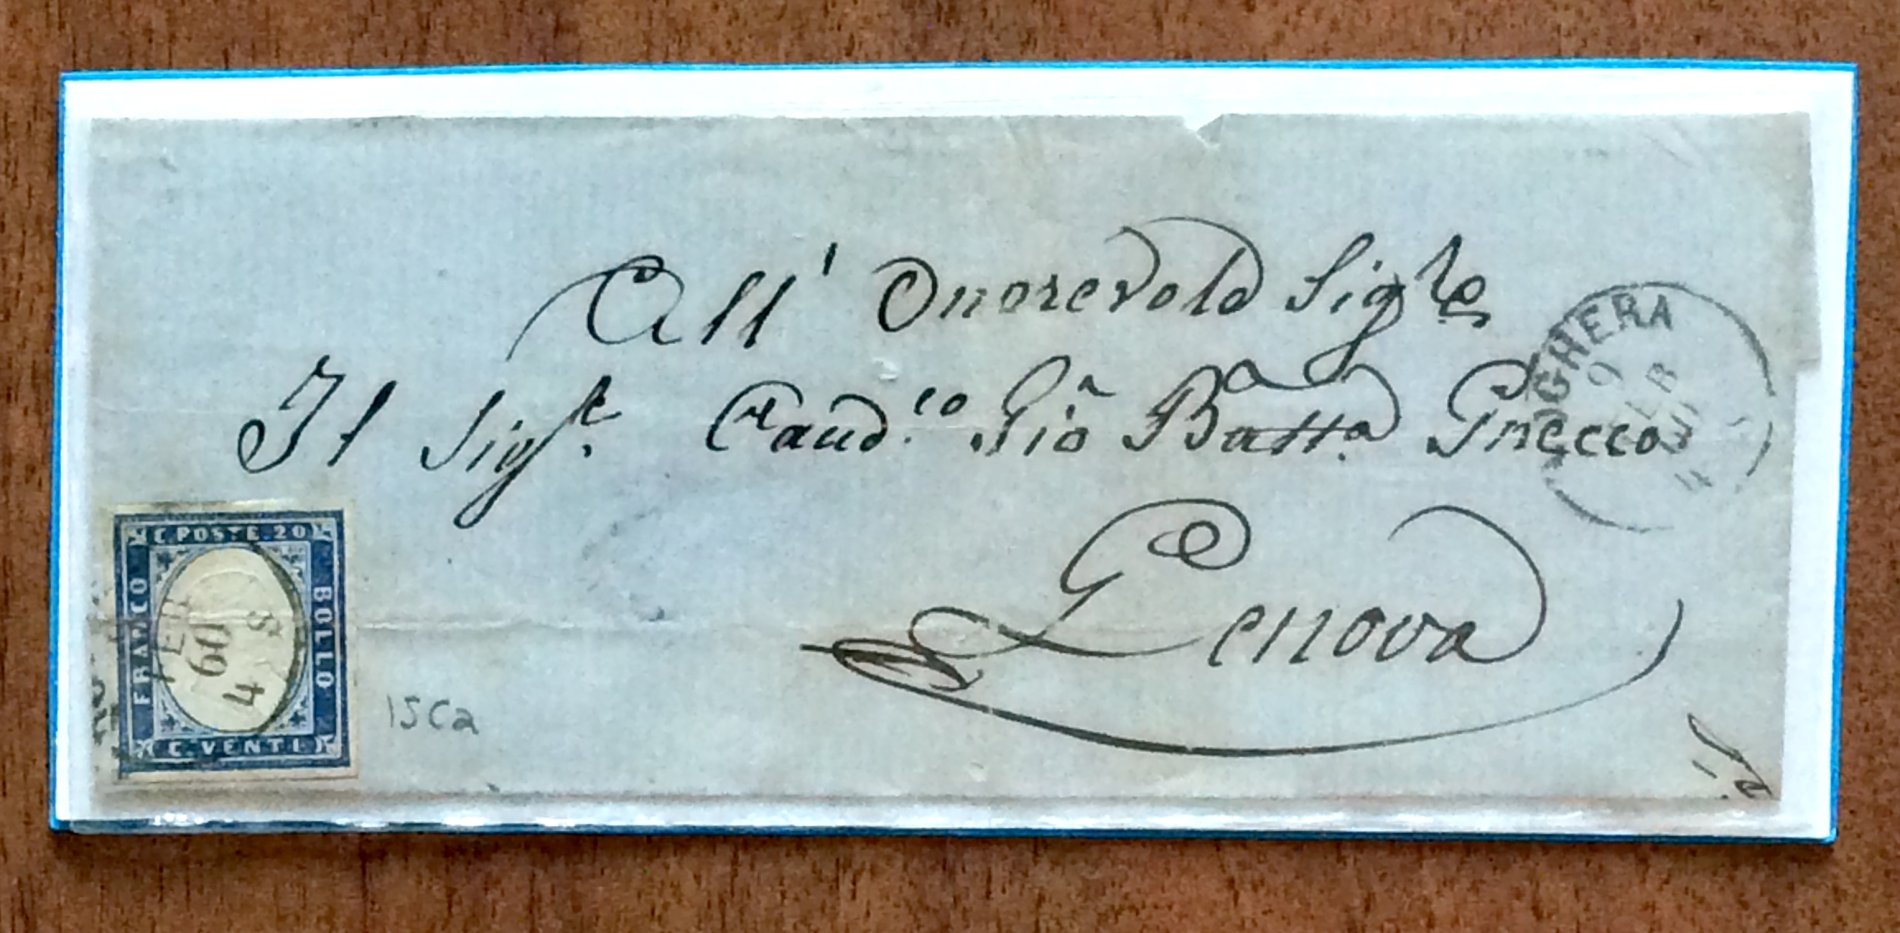 All' Onorevole Sigre
Il Sigre. Caud.co Gio Batta Grecco
Genova
VOGHERA
9
FEB
60
4 S
C. POSTE. 20
FRANCO
BOLLO
C. VENTI
FEB
60
4 S
15Ca